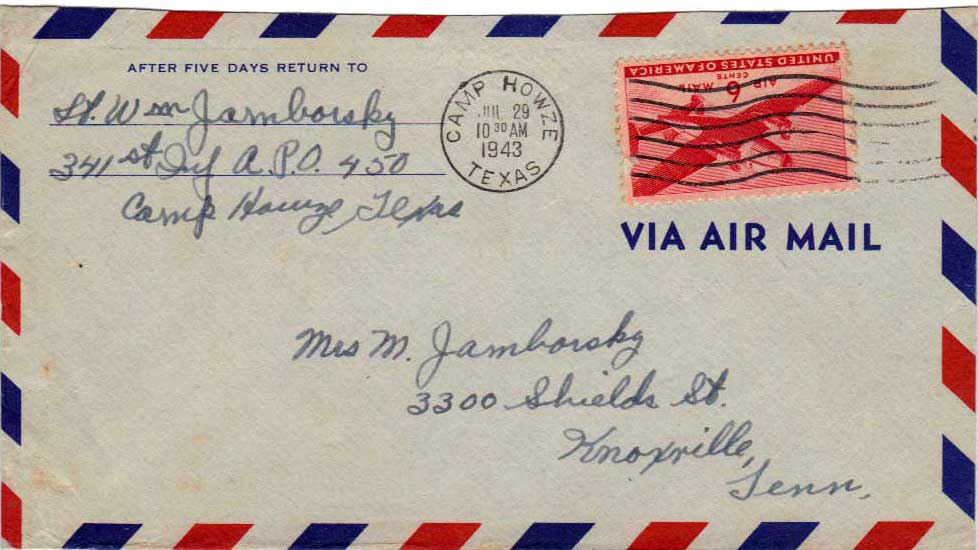 AFTER FIVE DAYS RETURN TO
Lt. Wm Jamborsky
341st Inf A.P.O. 450
Camp Howze, Texas
CAMP HOWZE
JUL 29
10 30 AM
1943
TEXAS
UNITED STATES OF AMERICA
AIR MAIL
6
CENTS
VIA AIR MAIL
Mrs M. Jamborsky
3300 Shields St.
Knoxville,
Tenn.